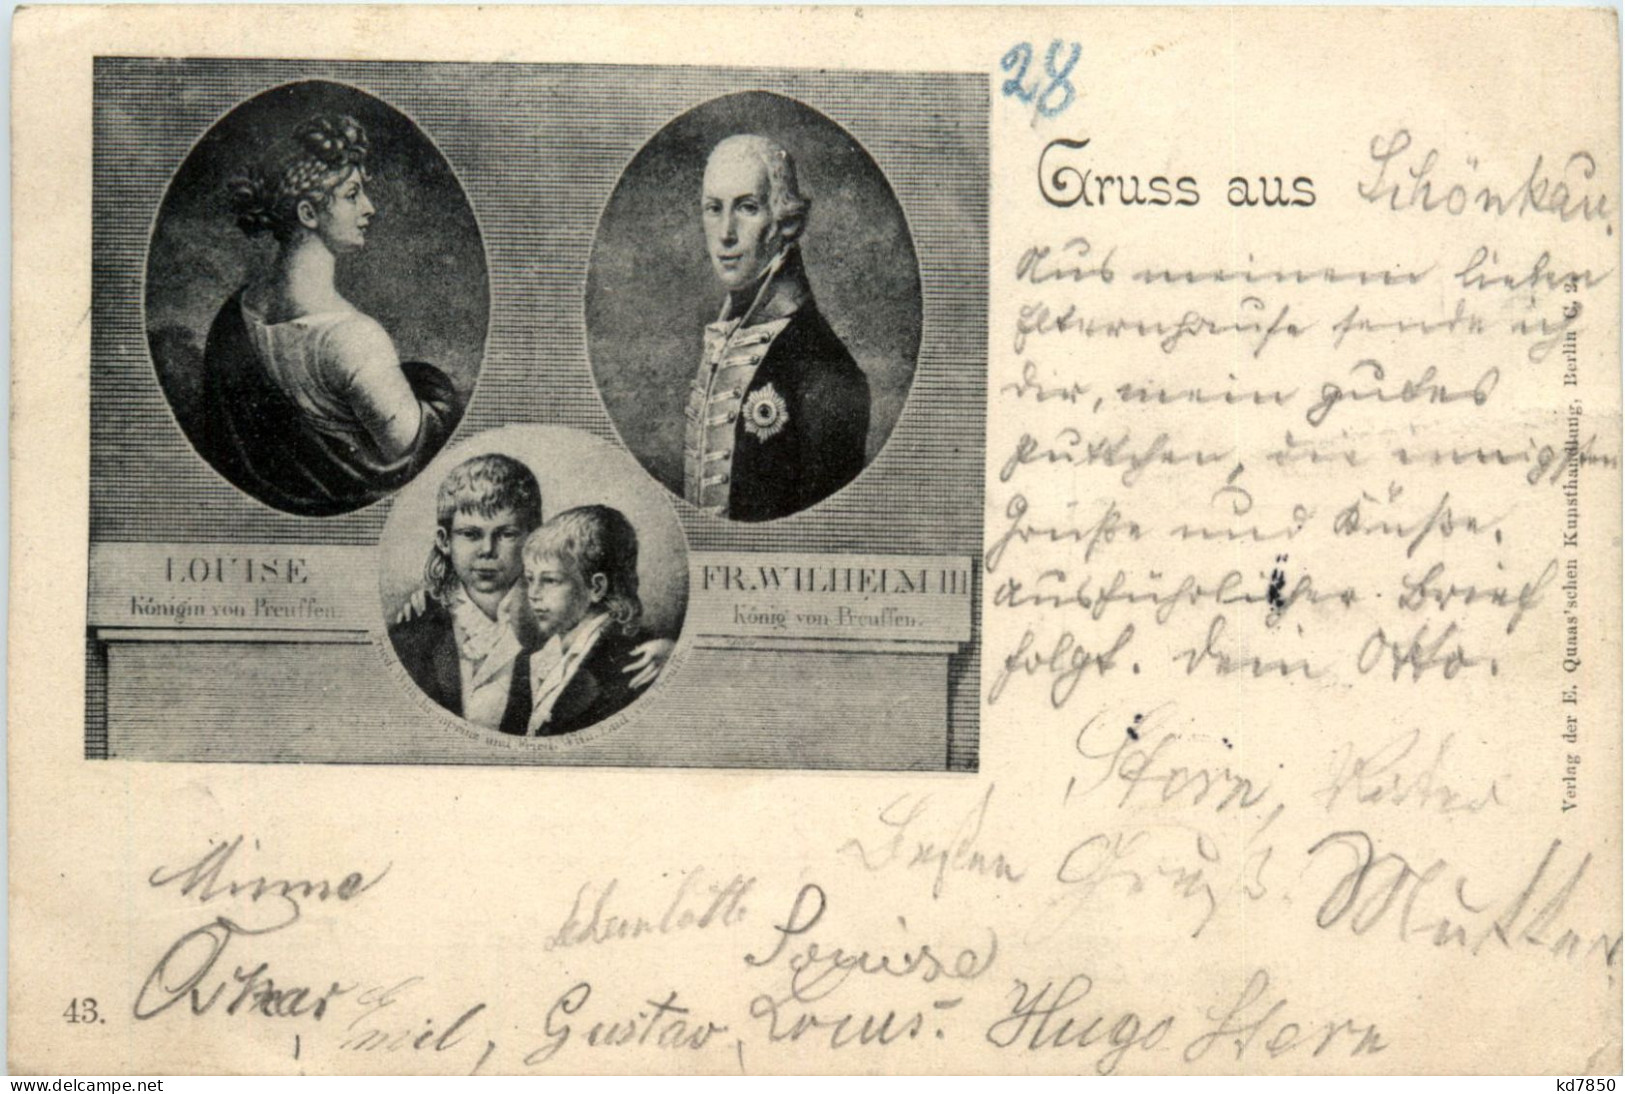 28
Gruss aus Schönkau.
Aus meinem lieben
Elternhause sende ich
dir, mein gutes
Puttchen, die innigsten
Grüße und Küße.
Ausführlicher Brief
folgt. Dein Otto.
LOUISE
Königin von Preussen.
FR. WILHELM III
König von Preussen.
Kronprinz und Fried. Wilh. Lud.
Stern, Vater
Besten Gruß Mutter
Minna
Louise
Oskar
Emil, Gustav, Louis. Hugo Stern
43.
Verlag der E. Quaas'schen Kunsthandlung, Berlin C. 2.
delcampe.net
kd7850